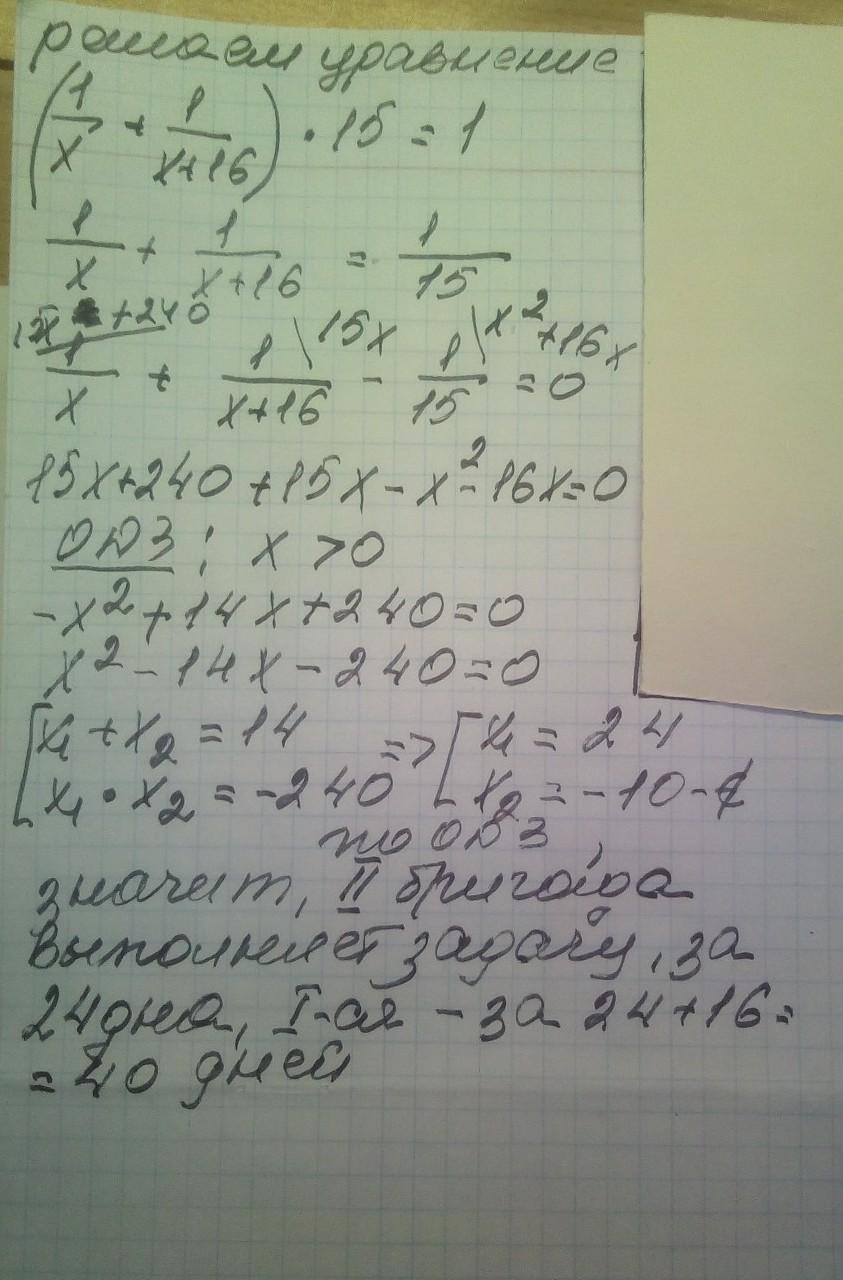 решаем уравнение
(1/x + 1/(x+16)) · 15 = 1
1/x + 1/(x+16) = 1/15
15x +240 \15x \x²+16x
1/x + 1/(x+16) - 1/15 = 0
15x+240+15x-x²-16x=0
ОДЗ: x>0
-x²+14x+240=0
x²-14x-240=0
[x₁+x₂=14 => [x₁=24
x₁·x₂=-240 x₂=-10-∉
по ОДЗ,
значит, II бригада
выполняет задачу, за
24дна, I-ая - за 24+16=
=40 дней